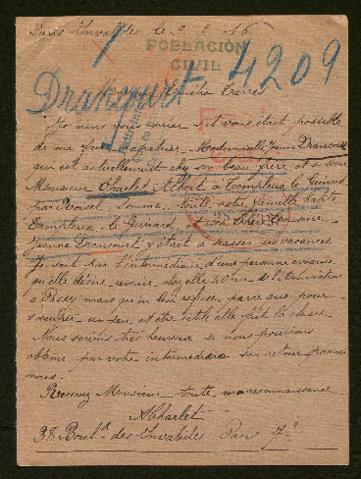 Paris Invalides le 2. 8. 16
POBLACIÓN
CIVIL
4209
Drancourt
Je viens vous s'il vous était possible
de me faire rapatrier Mademoiselle Jeanne Drancourt
qui est actuellement chez son beau frère et sa sœur
Monsieur Charlet Albert à Templeux le Guérard
par Roisel Somme, toute notre famille habite
Templeux le Guérard,
Jeanne Drancourt y était à passer ses vacances
Je sais par l'intermédiaire d'une personne évacuée
qu'elle désire revenir chez elle
à mais qu'on lui refuse parce que pour
s'occuper un peu et être utile elle fait la classe.
Nous serions très heureux si nous pouvions
obtenir par votre intermédiaire son retour parmi
nous.
Recevez Monsieur toute ma reconnaissance
A Charlet
38 Boul. des Invalides Paris 7e